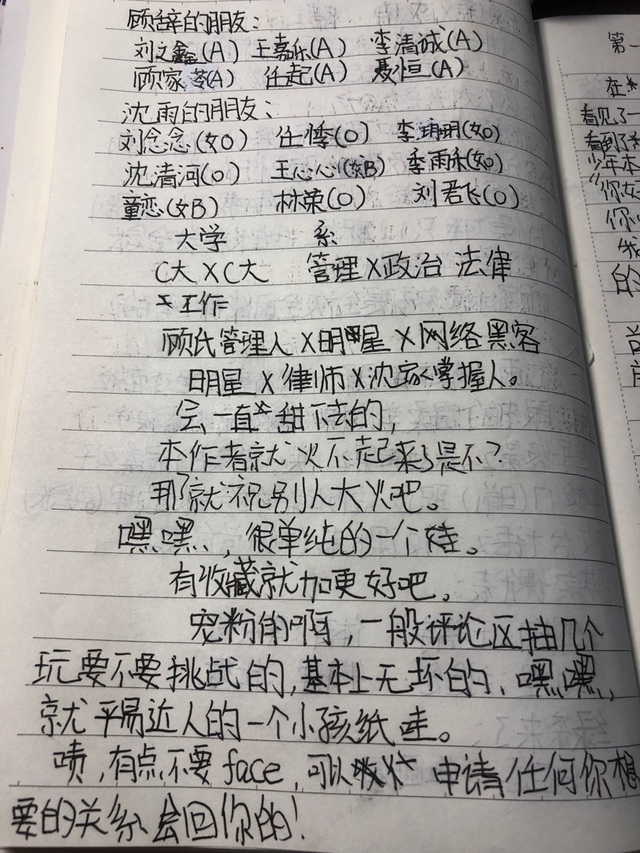 顾辞的朋友：
刘之鑫(A) 王嘉乐(A) 李清诚(A)
顾家苓(A) 任起(A) 聂恒(A)
沈雨的朋友：
刘念念(女O) 任悸(O) 李玥玥(女O)
沈清河(O) 王心心(女B) 李雨禾(女O)
童恋(女B) 林荣(O) 刘君飞(O)
大学 系
C大X C大 管理X政治 法律
工作
顾氏管理人X明星X网络黑客
明星X律师X沈家掌握人。
会一直甜下去的，
本作者就火不起来了是不？
那就祝别人大火吧。
嘿嘿，很单纯的一个娃。
有收藏就加更好吧。
宠粉的啊，一般评论区抽几个
玩要不要挑战的，基本上无坏的、嘿嘿，
就平易近人的一个小孩纸哇。
啧，有点不要face，可以 申请任何你想
要的关系会回你的！
第一
在
看见了一
看到了
少年本
你
的